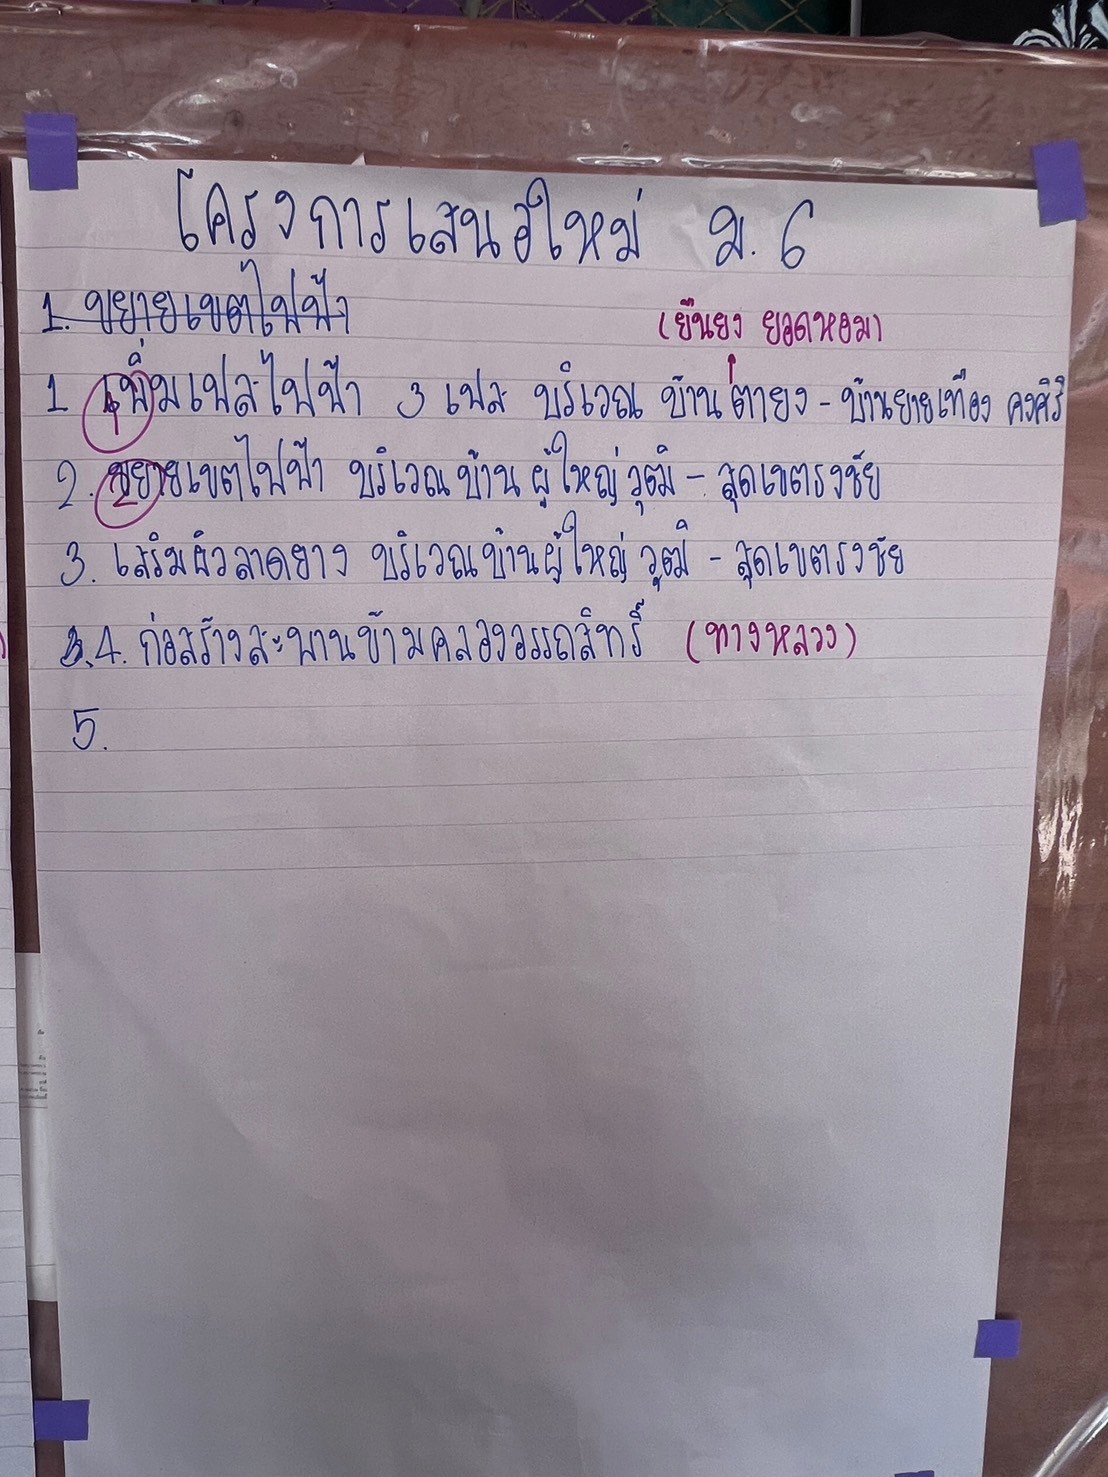 โครงการเสนอใหม่ ม. 6
1. ขยายเขตไฟฟ้า
(ยืนยง ยอดหอม)
1 เพิ่มเฟสไฟฟ้า 3 เฟส บริเวณ บ้านตายง - บ้านยายเทือง คงศิริ
1
2. ขยายเขตไฟฟ้า บริเวณบ้าน ผู้ใหญ่วุฒิ - สุดเขตธงชัย
2
3. เสริมผิวลาดยาง บริเวณบ้านผู้ใหญ่ วุฒิ - สุดเขตธงชัย
4. ก่อสร้างสะพานข้ามคลองอรรถสิทธิ์ (ทางหลวง)
5.